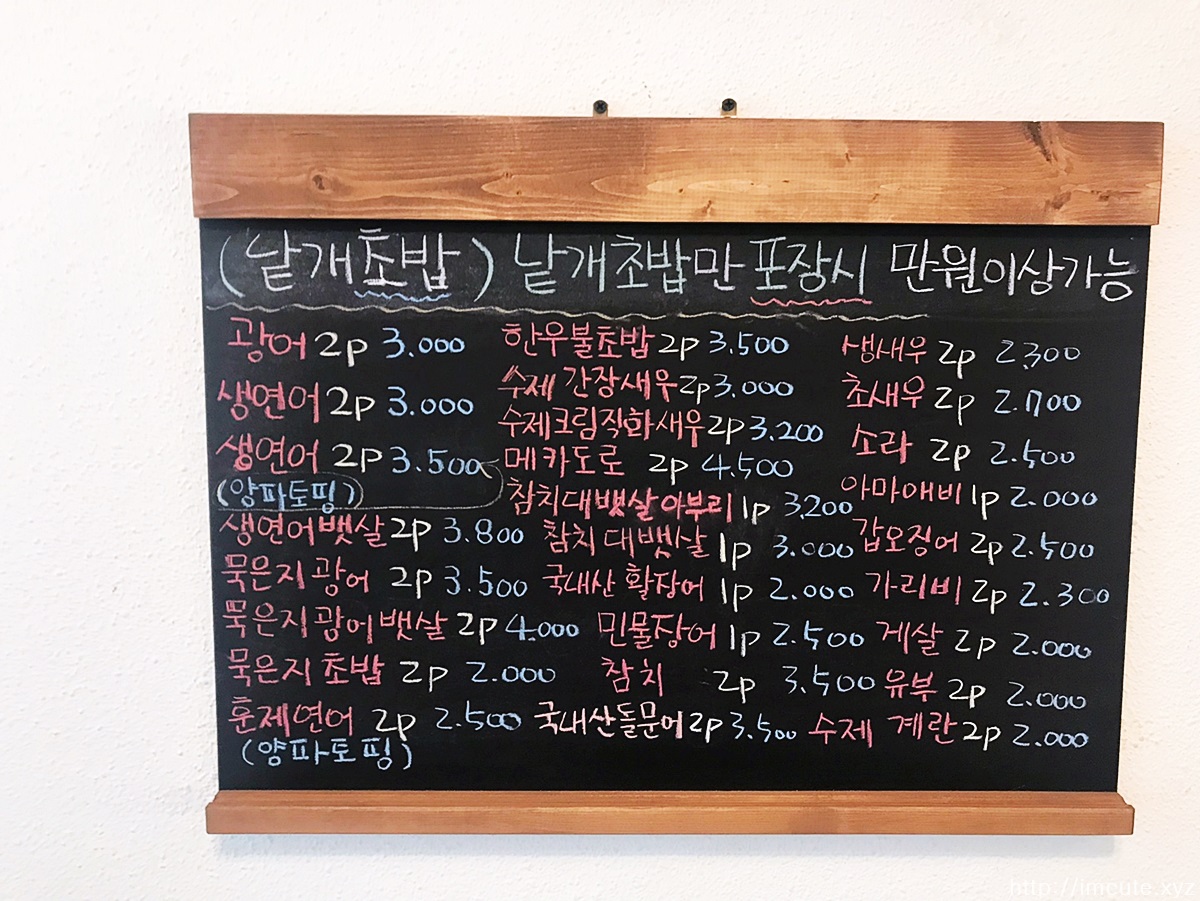 (낱개초밥) 낱개초밥만 포장시 만원이상가능
광어 2p 3.000
생연어 2p 3.000
생연어 2p 3.500
(양파토핑)
생연어뱃살 2p 3.800
묵은지광어 2p 3.500
묵은지광어뱃살 2p 4.000
묵은지초밥 2p 2.000
훈제연어 2p 2.500
(양파토핑)
한우불초밥 2p 3.500
수제 간장새우 2p 3.000
수제크림직화새우 2p 3.200
메카도로 2p 4.500
참치대뱃살아부리 1p 3.200
참치대뱃살 1p 3.000
국내산 활장어 1p 2.000
민물장어 1p 2.500
참치 2p 3.500
국내산돌문어 2p 3.500
생새우 2p 2.300
초새우 2p 2.700
소라 2p 2.500
아마애비 1p 2.000
갑오징어 2p 2.500
가리비 2p 2.300
게살 2p 2.000
유부 2p 2.000
수제 계란 2p 2.000
http://imcute.xyz